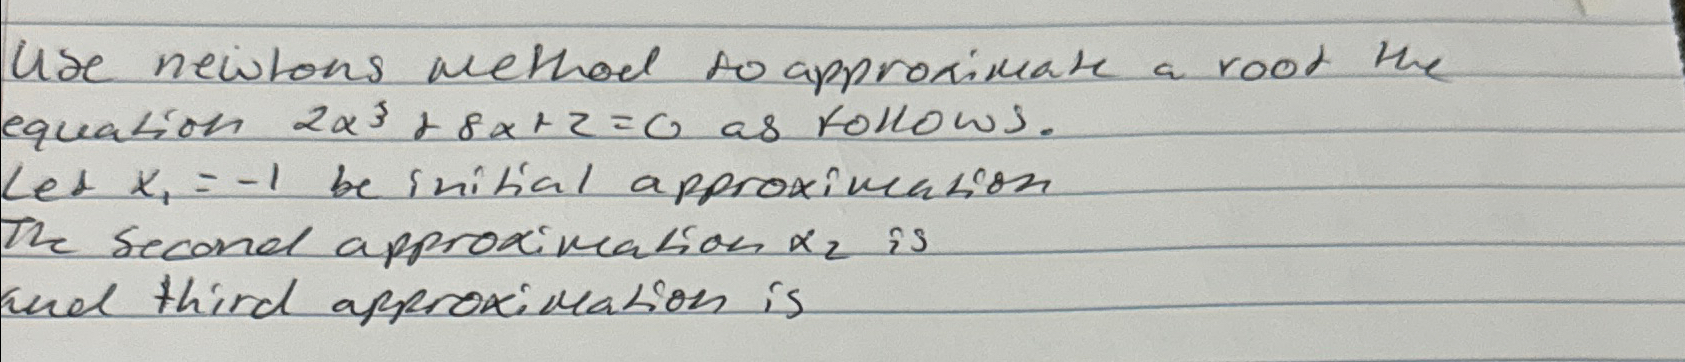 Use newtons method to approximate a root the
equation 2x³ + 8x + 2 = 0 as follows.
Let x₁ = -1 be initial approximation
The second approximation x₂ is
and third approximation is